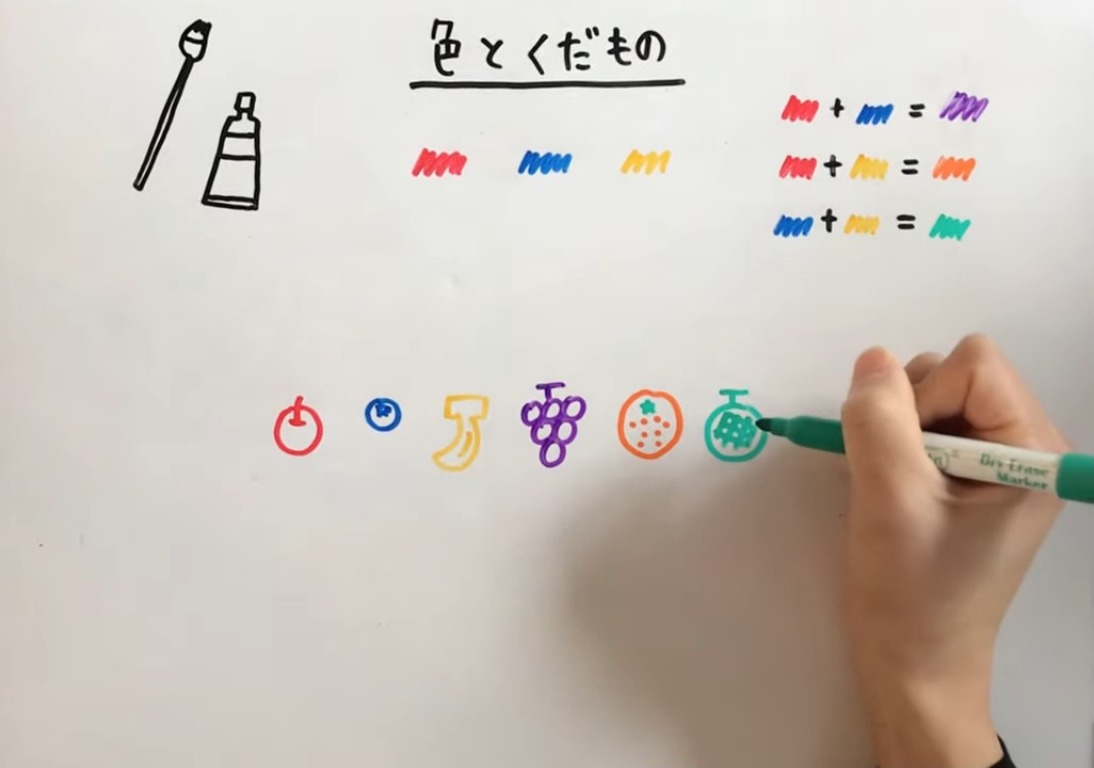 色とくだもの
+ =
+ =
+ =
Dry Erase
Marker